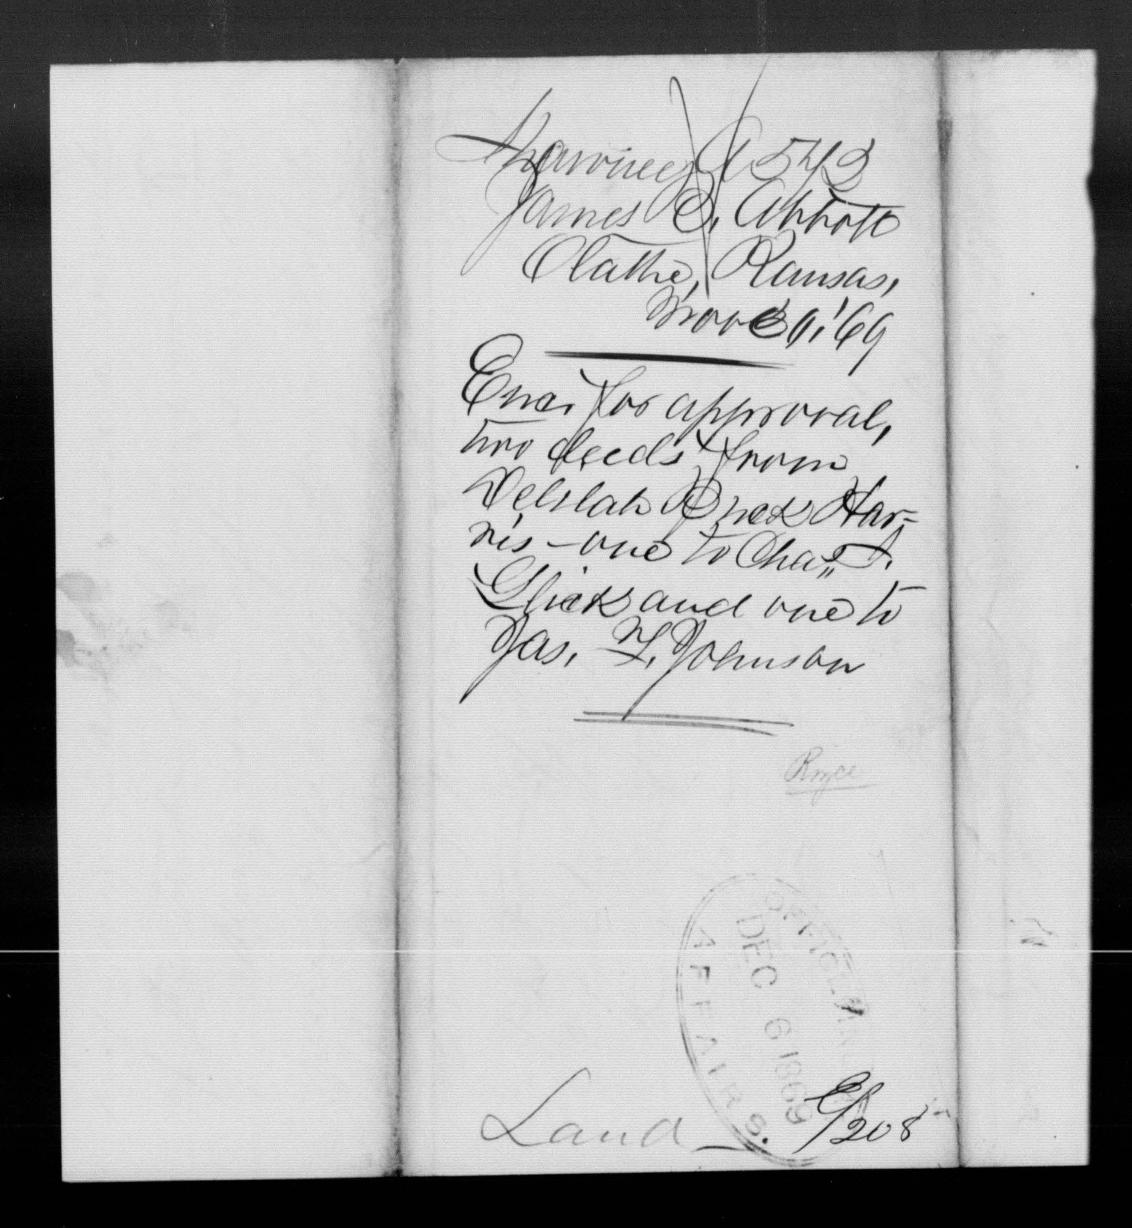 Shawnee A 543
James B. Abbott
Olathe, Kansas,
Nov 30, '69
Encs for approval,
two deeds from
Delilah Buck Har=
ris - one to Chas J.
Glick and one to
Jas. F. Johnson
Royce
OFFICE INDIAN
DEC 6 1869
AFFAIRS.
Land
E/208